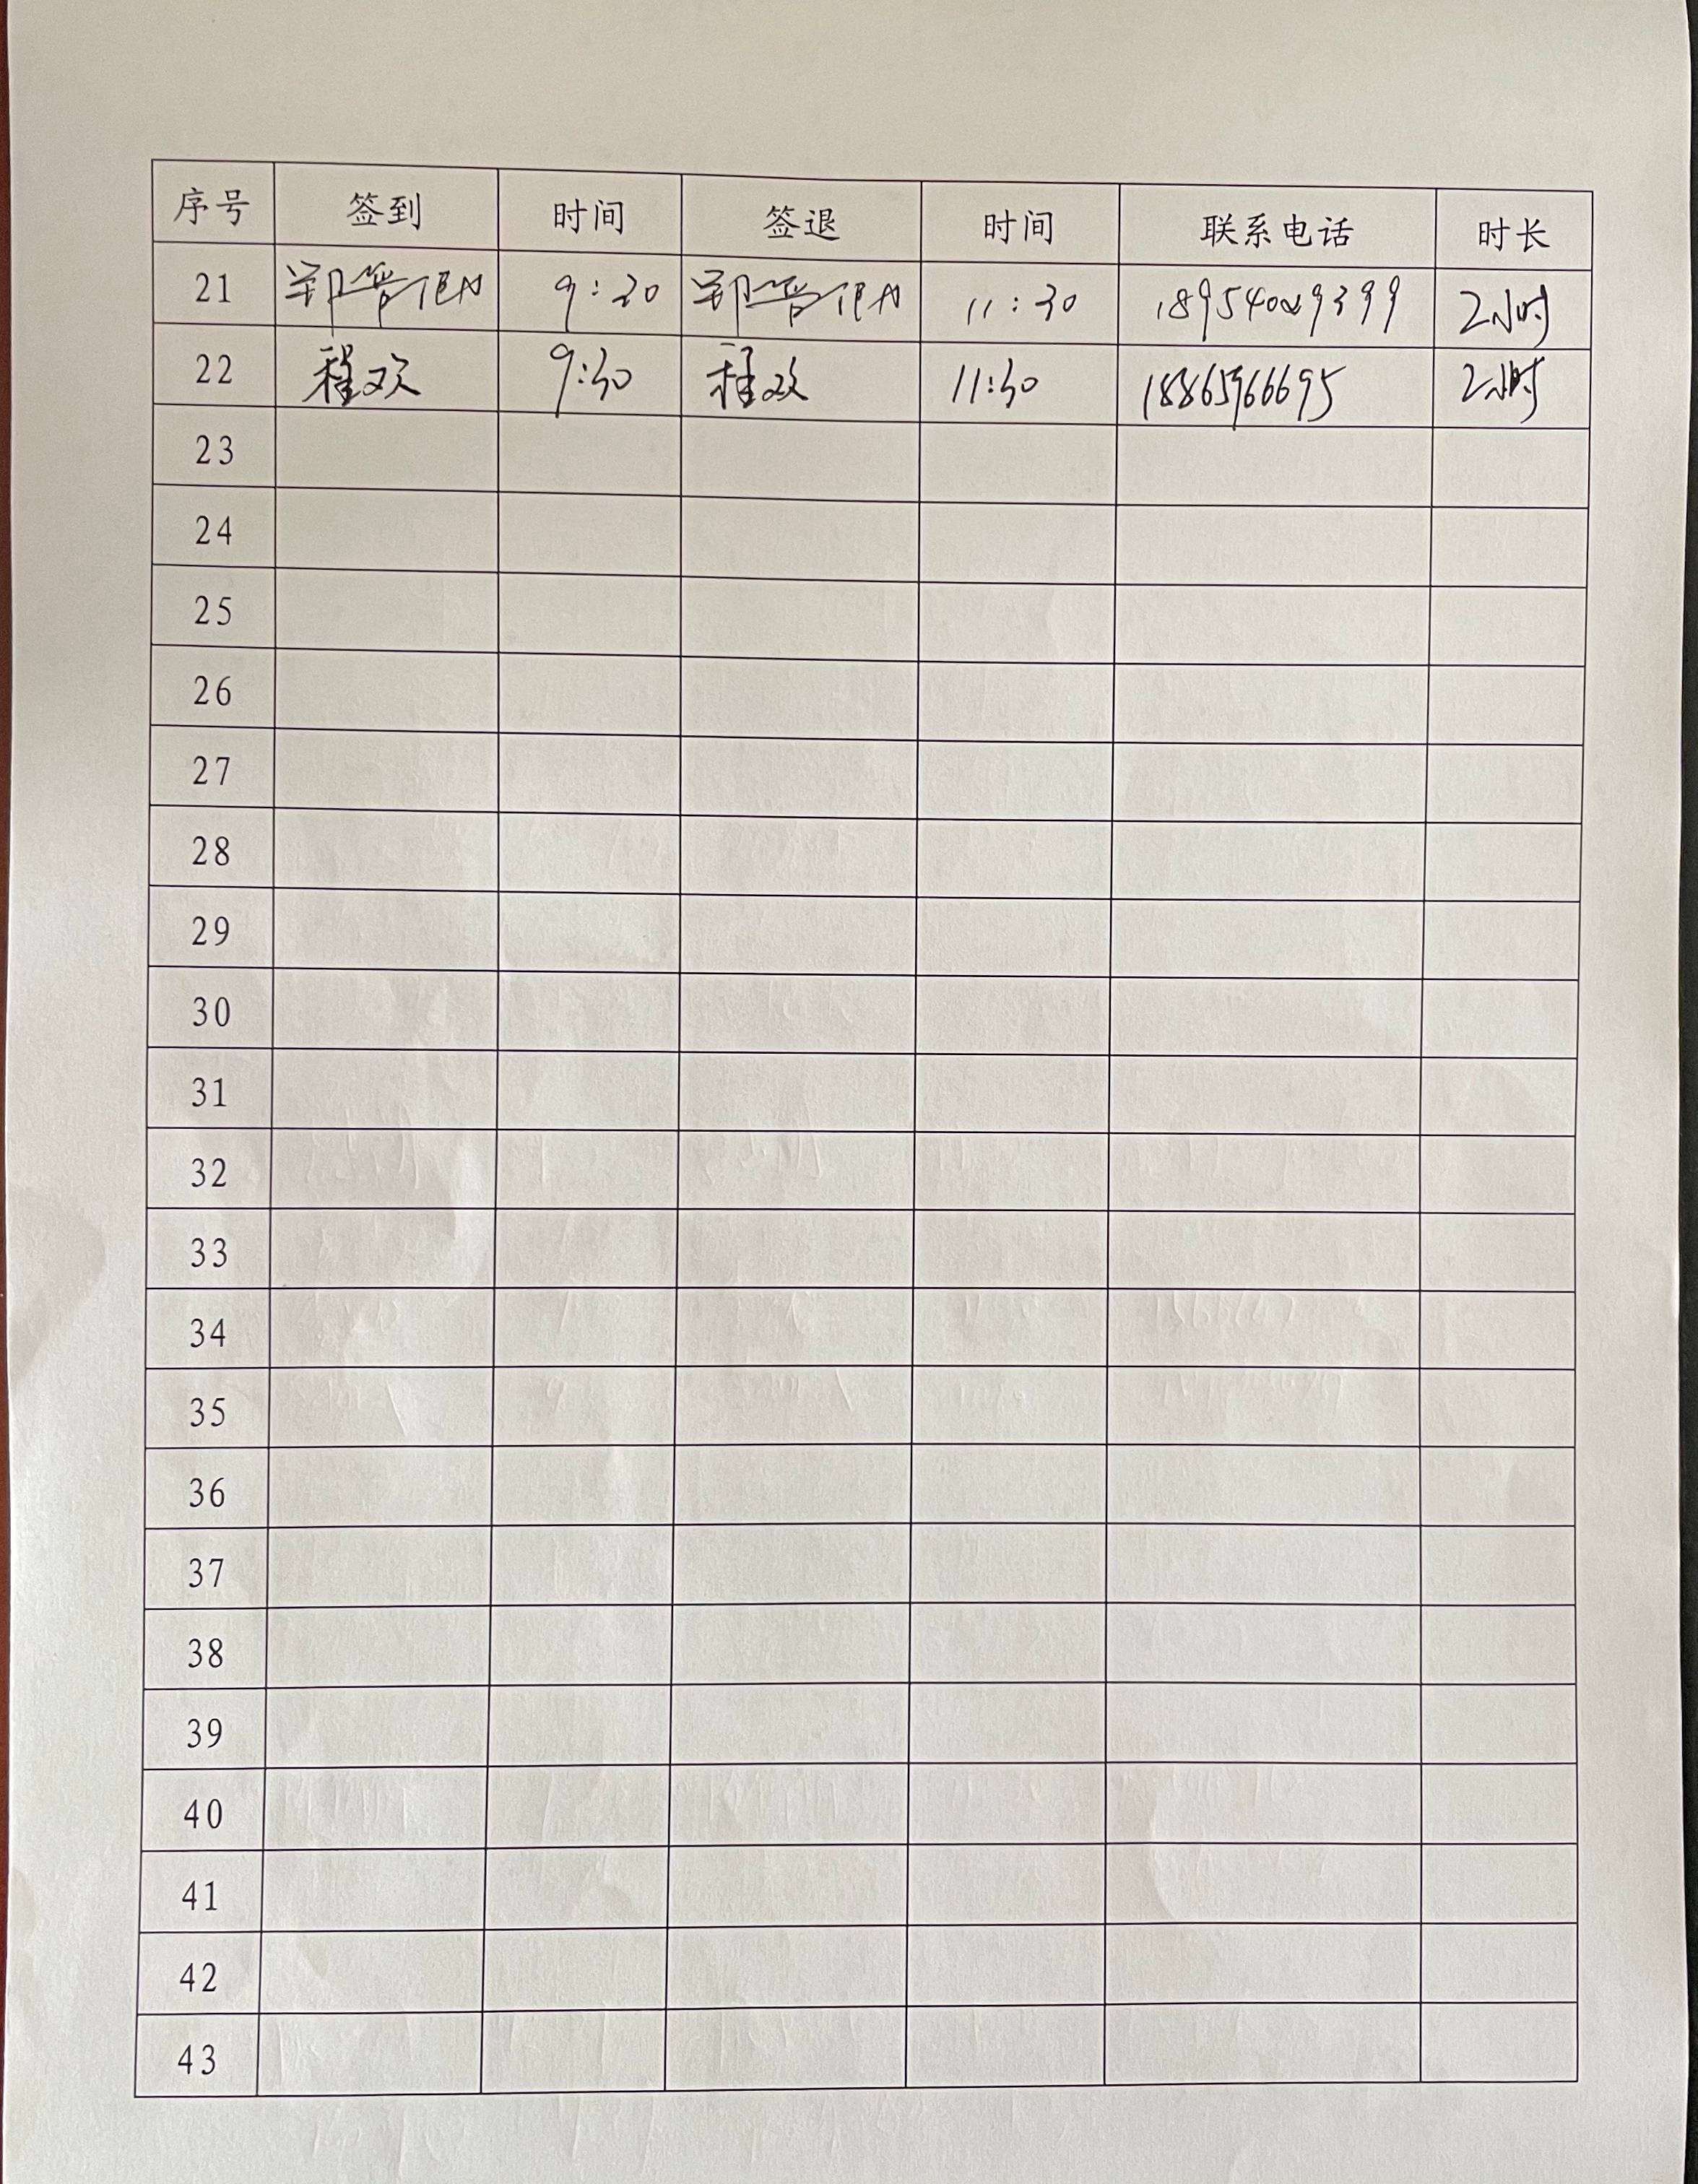 序号 签到 时间 签退 时间 联系电话 时长
21 9:30 11:30 2小时
22 程欢 9:30 程欢 11:30 18865966695 2小时
23
24
25
26
27
28
29
30
31
32
33
34
35
36
37
38
39
40
41
42
43